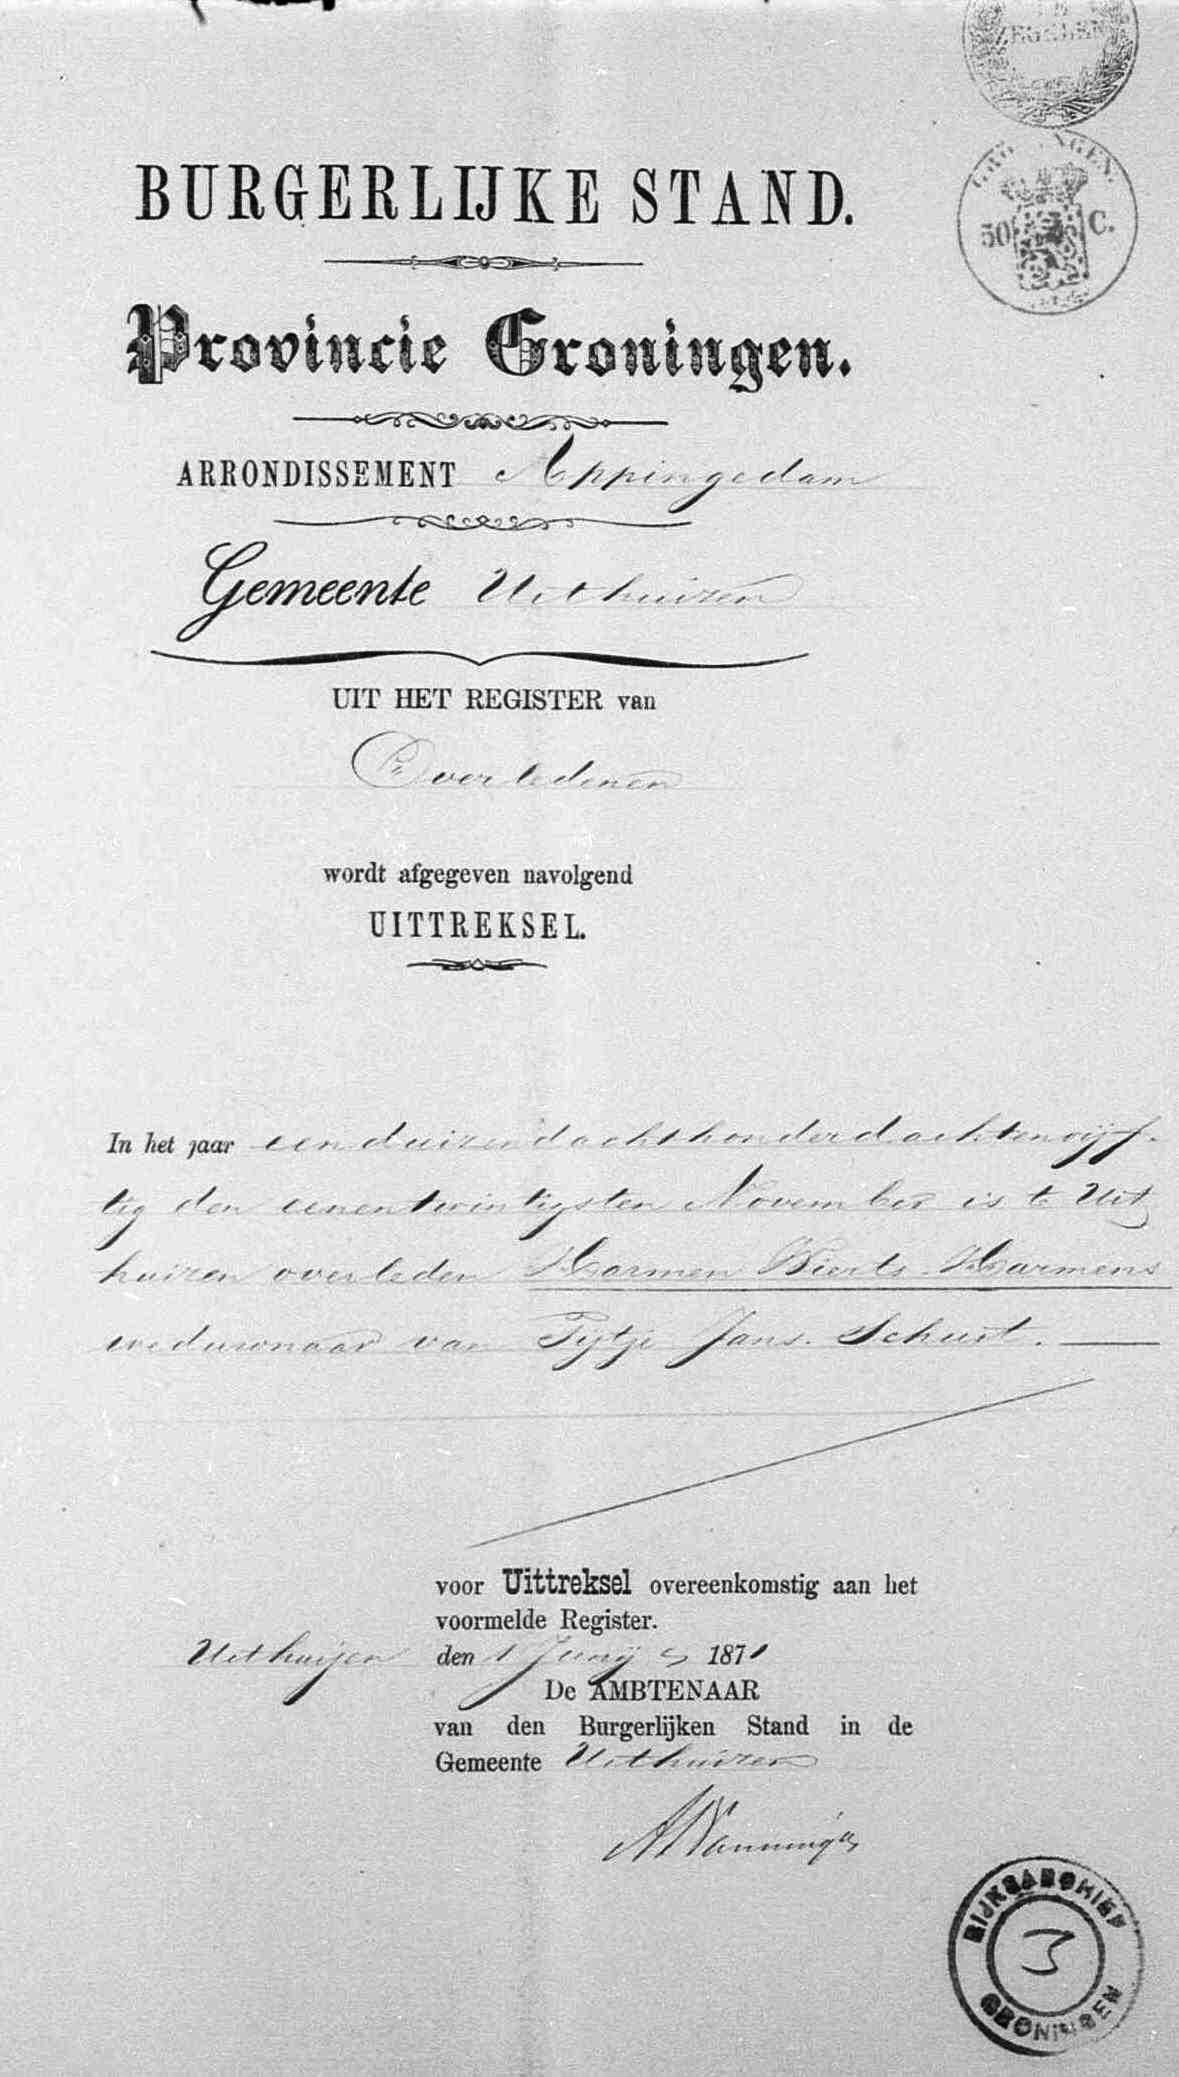 ZEGELEN
GRONINGEN.
50 C.
BURGERLIJKE STAND.
Provincie Groningen.
ARRONDISSEMENT Appingedam
Gemeente Uithuizen
UIT HET REGISTER van
Overledenen
wordt afgegeven navolgend
UITTREKSEL.
In het jaar eenduizendachthonderdachtenvijf-
tig den eenentwintigsten November is te Uit
huizen overleden Harmen Wierts Harmens
weduwnaar van Pijtje Jans Schuit.
voor Uittreksel overeenkomstig aan het
voormelde Register.
Uithuizen den 1 Junij 1871
De AMBTENAAR
van den Burgerlijken Stand in de
Gemeente Uithuizen
RIJKSARCHIEF
3
GRONINGEN